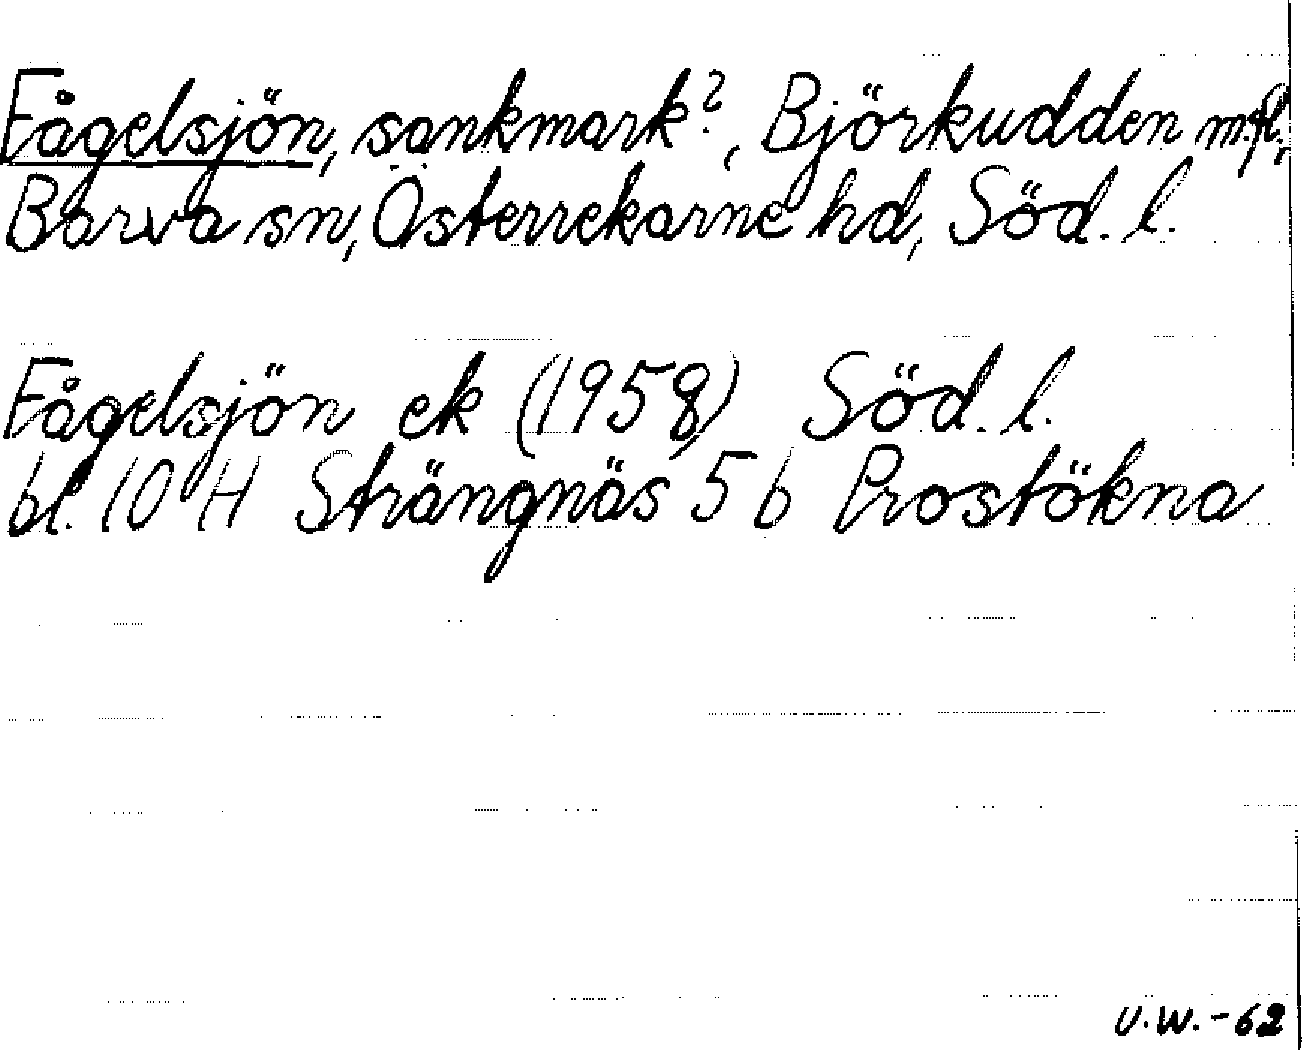 Fågelsjön, sankmark?, Björkudden m.fl.,
Barva sn, Österrekarne hd, Söd. l.
Fågelsjön ek (1958) Söd. l.
bl. 10 H Strängnäs 5 b Prostökna
U.W.-62